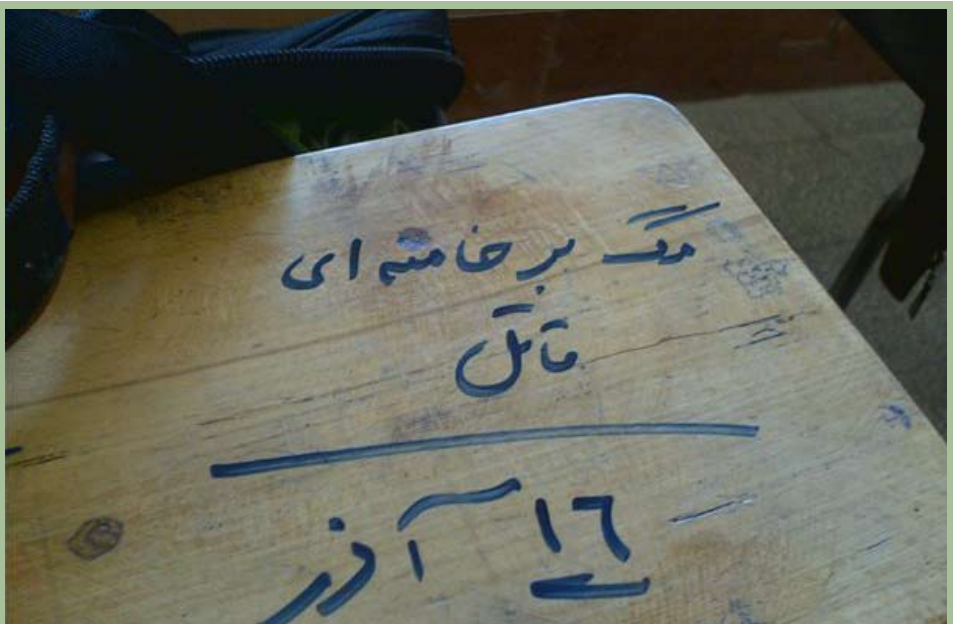 مرگ بر خامنه ای
قاتل
۱۶ آذر